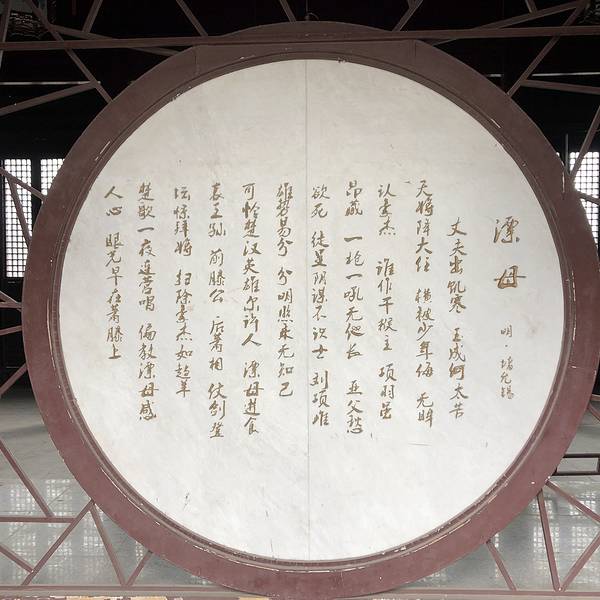 漂母
明·堵允锡
丈夫出饥寒 玉成何太苦
天将降大任 横被少年侮 无眸
认豪杰 谁作千主 项羽虽
昂藏 一一吼无他长 亚父愁
欲死 徒阴谋不识士 刘项雌
雄易分 分明照无知己
可怜楚汉英雄尔许人 漂母进食
哀王孙 前滕公 后萧相 仗剑登
坛惊拜将 扫除豪杰如羊
楚歌一夜连营唱 偏教漂母感
人心 眼光早在萧滕上